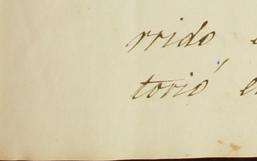 rrido
torió